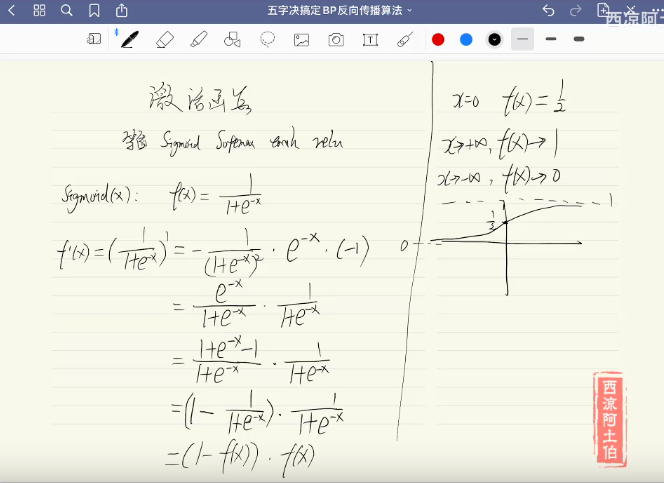 五字决搞定BP反向传播算法
西凉阿土
激活函数
Sigmoid Softmax tanh relu
Sigmoid(x): f(x) = 1/(1+e^-x)
f'(x) = (1/(1+e^-x))' = - 1/(1+e^-x)² · e^-x · (-1)
= e^-x/(1+e^-x) · 1/(1+e^-x)
= (1+e^-x-1)/(1+e^-x) · 1/(1+e^-x)
= (1 - 1/(1+e^-x)) · 1/(1+e^-x)
= (1 - f(x)) · f(x)
x=0 f(x) = 1/2
x→+∞, f(x)→1
x→-∞, f(x)→0
1
0
西凉阿土伯